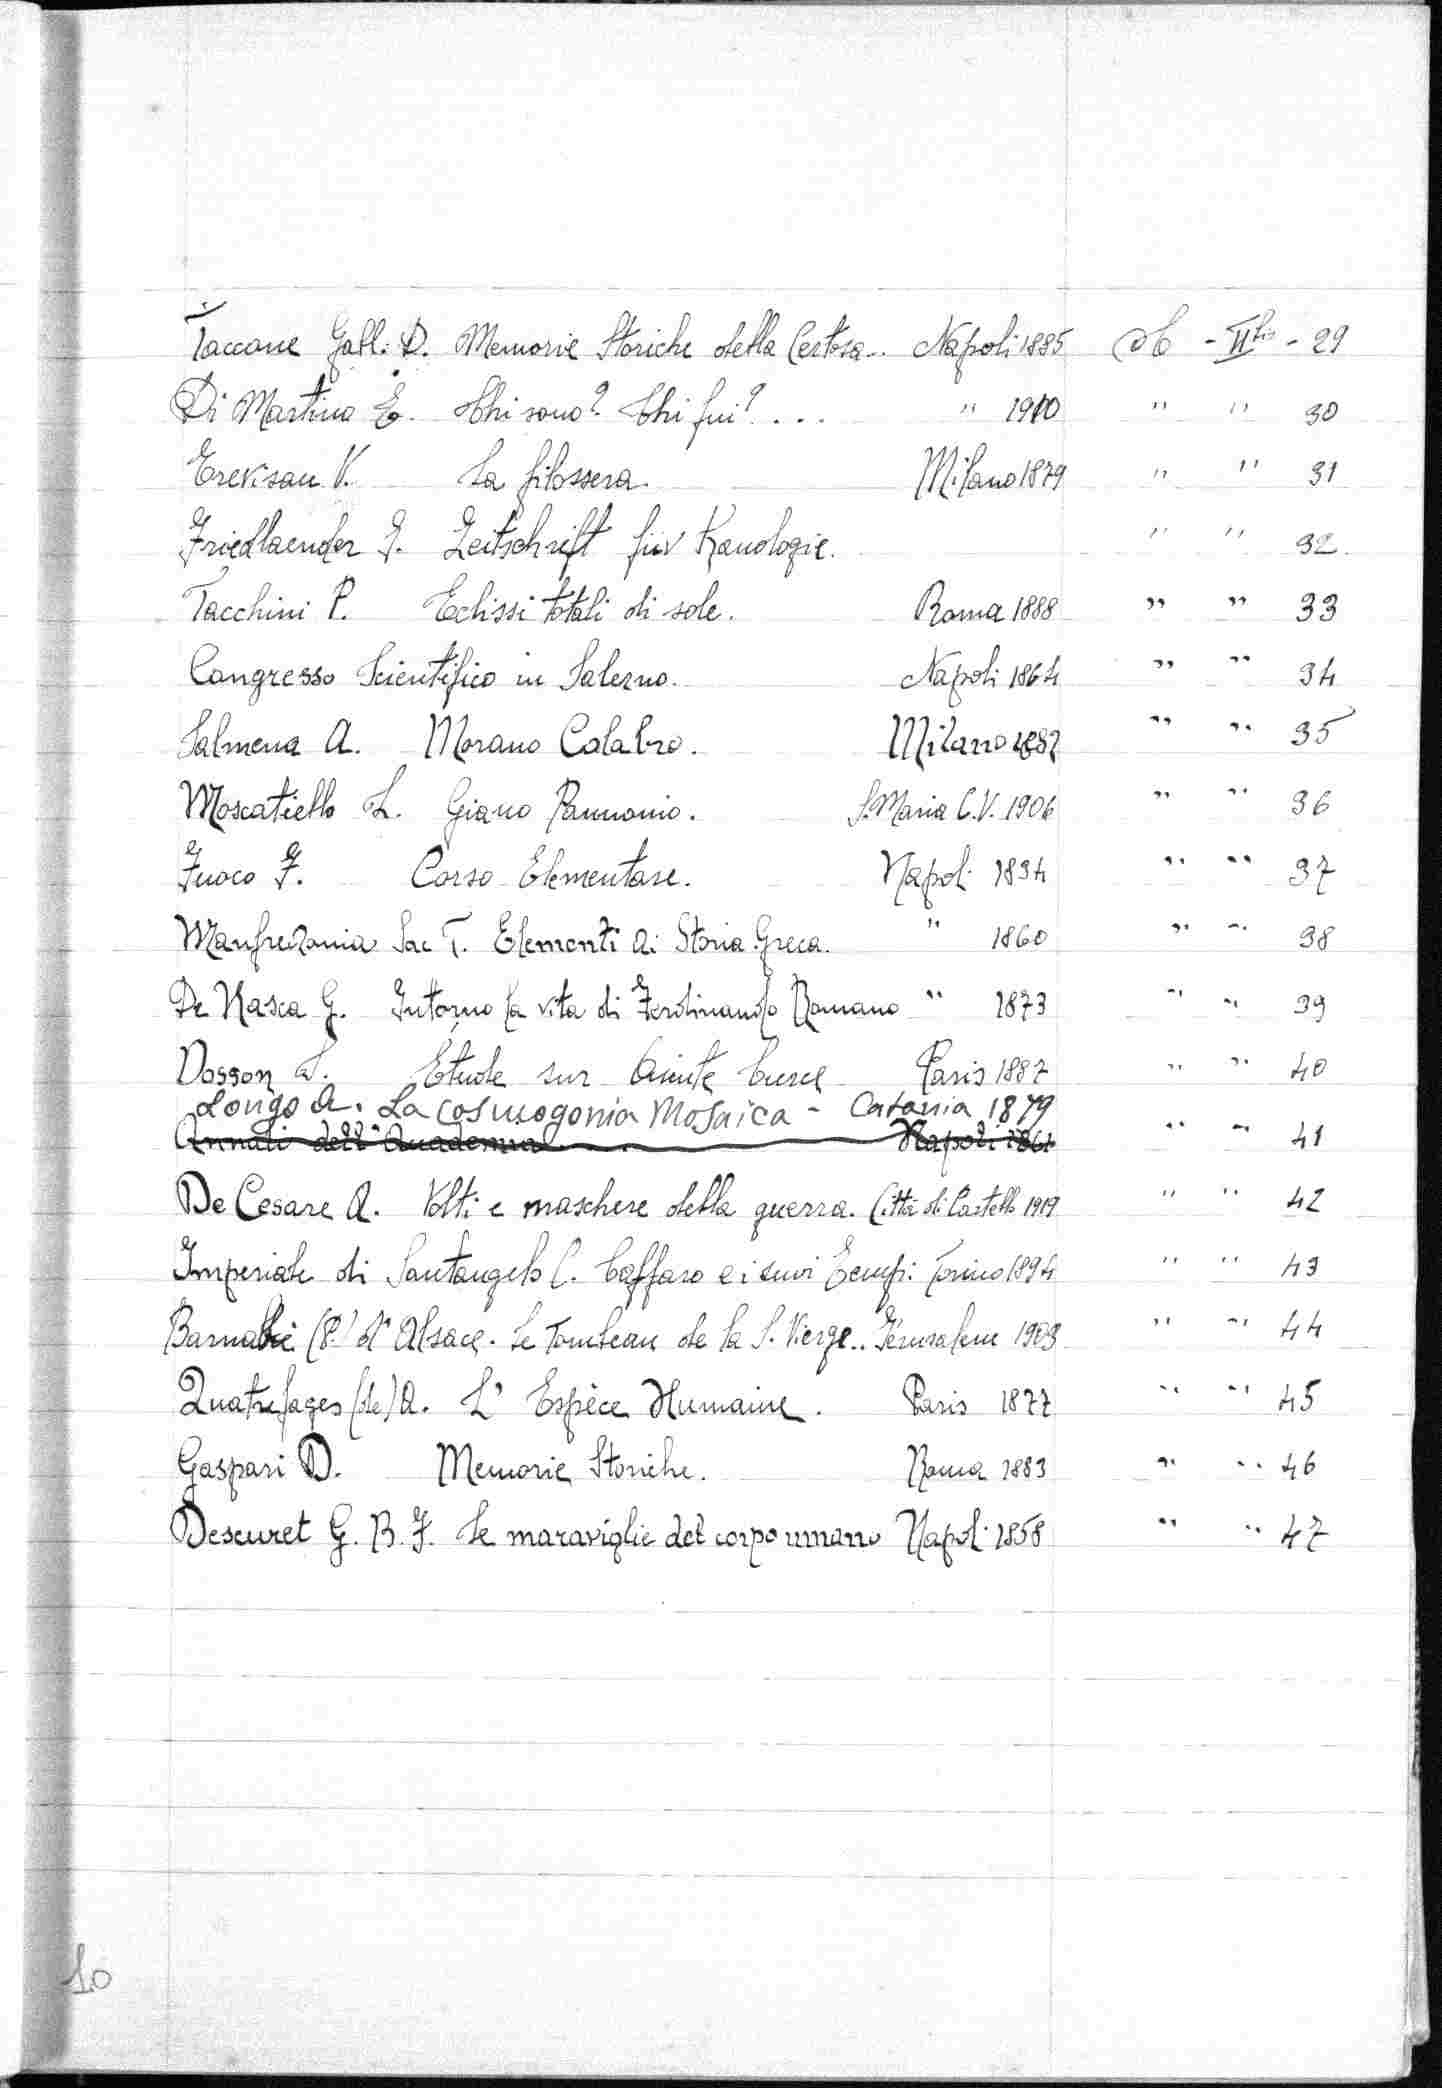 Taccone Gall. D. Memorie Storiche della Certosa.. Napoli 1885 - II bis - 29
Di Martino E. Chi sono? Chi fui? ... " 1910 " " 30
Trevisan V. La filossera. Milano 1879 " " 31
Friedlaender J. Zeitschrift für 32
Tacchini P. Eclissi totali di sole. Roma 1888 " " 33
Congresso Scientifico in Salerno. Napoli 1864 " " 34
Salmena A. Morano Calabro. Milano 1882 " " 35
Moscatiello L. Giano Pannonio. S. Maria C.V. 1906 " " 36
Fuoco F. Corso Elementare. Napoli 1834 " " 37
Manfredonia Sac T. Elementi di Storia Greca. " 1860 " " 38
De Nasca G. Intorno la vita di Ferdinando Romano " 1873 " " 39
Dosson S. Etude sur Quinte Curce Paris 1887 " " 40
Longo A. La Cosmogonia Mosaica - Catania 1879
Annali dell'Accademia Napoli 1861 " " 41
De Cesare R. Volti e maschere della guerra. Città di Castello 1919 " " 42
Imperiale di Santangelo C. Caffaro e i suoi Tempi. Torino 1894 " " 43
Barnabé (P.) d'Alsace. Le Tombeau de la S. Vierge.. Jérusalem 1903 " " 44
Quatrefages (de) A. L'Espèce Humaine. Paris 1877 " " 45
Gaspari D. Memorie Storiche. Roma 1883 " " 46
Descuret G. B. F. Le maraviglie del corpo umano Napoli 1858 " " 47
10